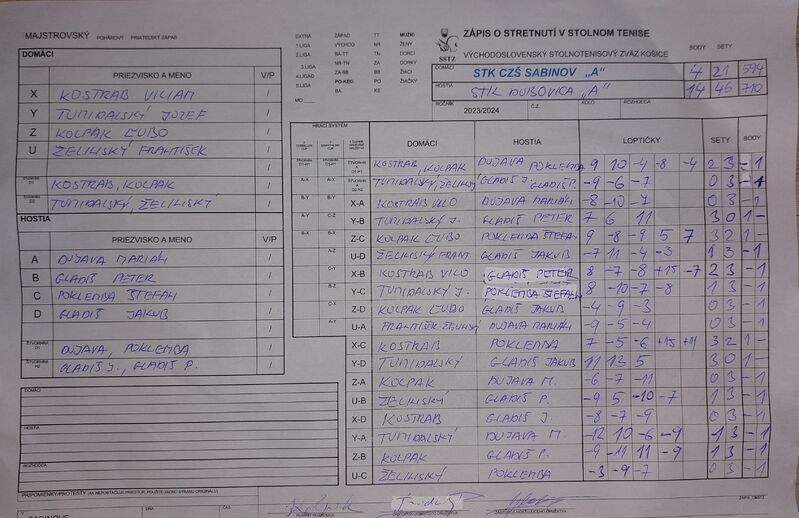 MAJSTROVSKÝ POHÁROVÝ PRIATEĽSKÝ ZÁPAS
DOMÁCI
PRIEZVISKO A MENO V/P
X KOSTRAB VILIAM /
Y TUNIDALSKÝ JOZEF /
Z KOLPAK ĽUBO /
U ŽELINSKÝ FRANTIŠEK /
KOSTRAB, KOLPAK /
TUNIDALSKÝ, ŽELINSKÝ /
HOSTIA
PRIEZVISKO A MENO V/P
A DUJAVA MARIÁN /
B GLADIŠ PETER /
C POKLEMBA ŠTEFAN /
D GLADIŠ JAKUB /
DUJAVA, POKLEMBA /
GLADIŠ J., GLADIŠ P. /
DOMÁCI
HOSTIA
ROZHODCA
EXTRA ZÁPAD TT MUŽI
I.LIGA VÝCHOD NR ŽENY
II.LIGA BA-TT TN DORCI
III.LIGA NR-TN ZA DORKY
IV.LIGA ZA-BB BB ŽIACI
V.LIGA PO-KE PO ŽIAČKY
BA KE
MO
SSTZ
ZÁPIS O STRETNUTÍ V STOLNOM TENISE
VÝCHODOSLOVENSKÝ STOLNOTENISOVÝ ZVÄZ KOŠICE
BODY SETY
DOMÁCI STK CZŠ SABINOV „A" 4 21 594
HOSTIA STK DUBOVICA „A" 14 46 710
ROČNÍK 2023/2024 Č.Z. KOLO ROZHODCA
HRACÍ SYSTÉM DOMÁCI HOSTIA LOPTIČKY SETY BODY
KOSTRAB, KOLPAK DUJAVA POKLEMBA 9 10 -4 -8 -4 2 3 - 1
TUNIDALSKÝ, ŽELINSKÝ GLADIŠ J. GLADIŠ P. -9 -6 -7 0 3 - 1
X-A KOSTRAB VILO DUJAVA MARIÁN -8 -10 -7 0 3 - 1
Y-B TUNIDALSKÝ J. GLADIŠ PETER 7 6 11 3 0 1 -
Z-C KOLPAK ĽUBO POKLEMBA ŠTEFAN 9 -8 -9 5 7 3 2 1 -
U-D ŽELINSKÝ FRANT. GLADIŠ JAKUB -7 11 -4 -3 1 3 - 1
X-B KOSTRAB VILO GLADIŠ PETER 8 -7 -8 +15 -7 2 3 - 1
Y-C TUNIDALSKÝ J. POKLEMBA ŠTEFAN 8 -10 -7 -8 1 3 - 1
Z-D KOLPAK ĽUBO GLADIŠ JAKUB -4 -9 -3 0 3 - 1
U-A FRANTIŠEK ŽELINSKÝ DUJAVA MARIÁN -9 -5 -4 0 3 - 1
X-C KOSTRAB POKLEMBA 7 -5 -6 +15 +11 3 2 1 -
Y-D TUNIDALSKÝ GLADIŠ JAKUB 11 13 5 3 0 1 -
Z-A KOLPAK DUJAVA M. -6 -7 -11 0 3 - 1
U-B ŽELINSKÝ GLADIŠ P. -9 5 -10 -7 1 3 - 1
X-D KOSTRAB GLADIŠ J. -8 -7 -9 0 3 - 1
Y-A TUNIDALSKÝ DUJAVA M. -12 10 -6 -9 1 3 - 1
Z-B KOLPAK GLADIŠ P. -9 -11 11 -9 1 3 - 1
U-C ŽELINSKÝ POKLEMBA -3 -9 -7 0 3 - 1
PRIPOMIENKY/PROTESTY (AK NEPOSTAČUJE PRIESTOR, POUŽITE ZADNÚ STRANU ORIGINÁLU)